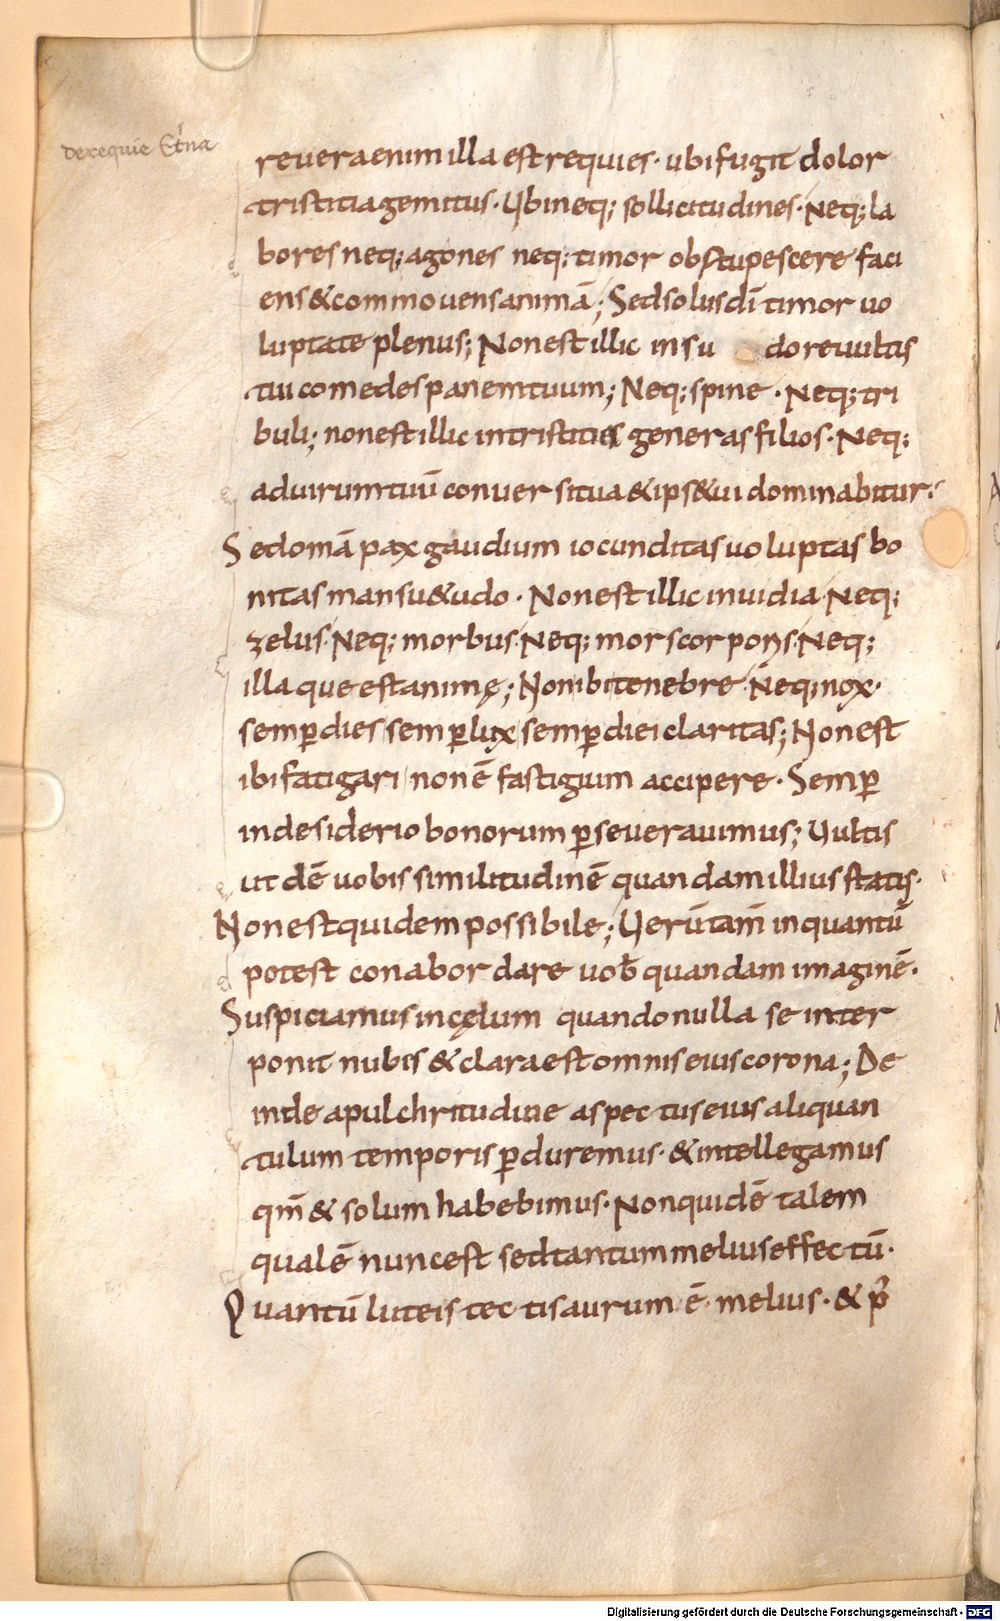 de requie Etna
revera enim illa est requies· ubi fugit dolor
tristitia gemitus· Ubi neq; sollicitudines· Neq; la
bores neq; agones neq; timor obstupescere faci
ens & commovens animā; Sed solus dī timor vo
luptate plenus; Non est illic in su dore vultis
tui comedes panem tuum; Neq; spine · Neq; tri
buli; non est illic in tristities generas filios· Neq;
ad virum tuū conversi tua & ips& vi dominabitur·
Sed omā pax gaudium iocunditas voluptas bo
nitas mansu&udo · Non est illic invidia Neq;
zelus· Neq; morbus· Neq; mors corporis· Neq;
illa que est animę; Non ibi tenebre· Neq; nox·
semꝑ dies semꝑ lux semꝑ diei claritas; Non est
ibi fatigari non ē fastigium accipere· Semꝑ
in desiderio bonorum ꝑseveravimus; Vultis
ut dē vobis similitudinē quandam illius statis·
Non est quidem possibile; Verūtam̄ in quantū
potest conabor dare vob̄ quandam imaginē·
Suspiciamus in cęlum quando nulla se inter
ponit nubis & clara est omnis eius corona; De
inde a pulchritudine aspectus eius aliquan
tulum temporis ꝑduremus· & intellegamus
qm̄ & solum habebimus· Non quidē talem
qualē nunc est sed tantum melius effectū·
Quantū luteis tectis aurum ē melius· & p̄
Digitalisierung gefördert durch die Deutsche Forschungsgemeinschaft - DFG